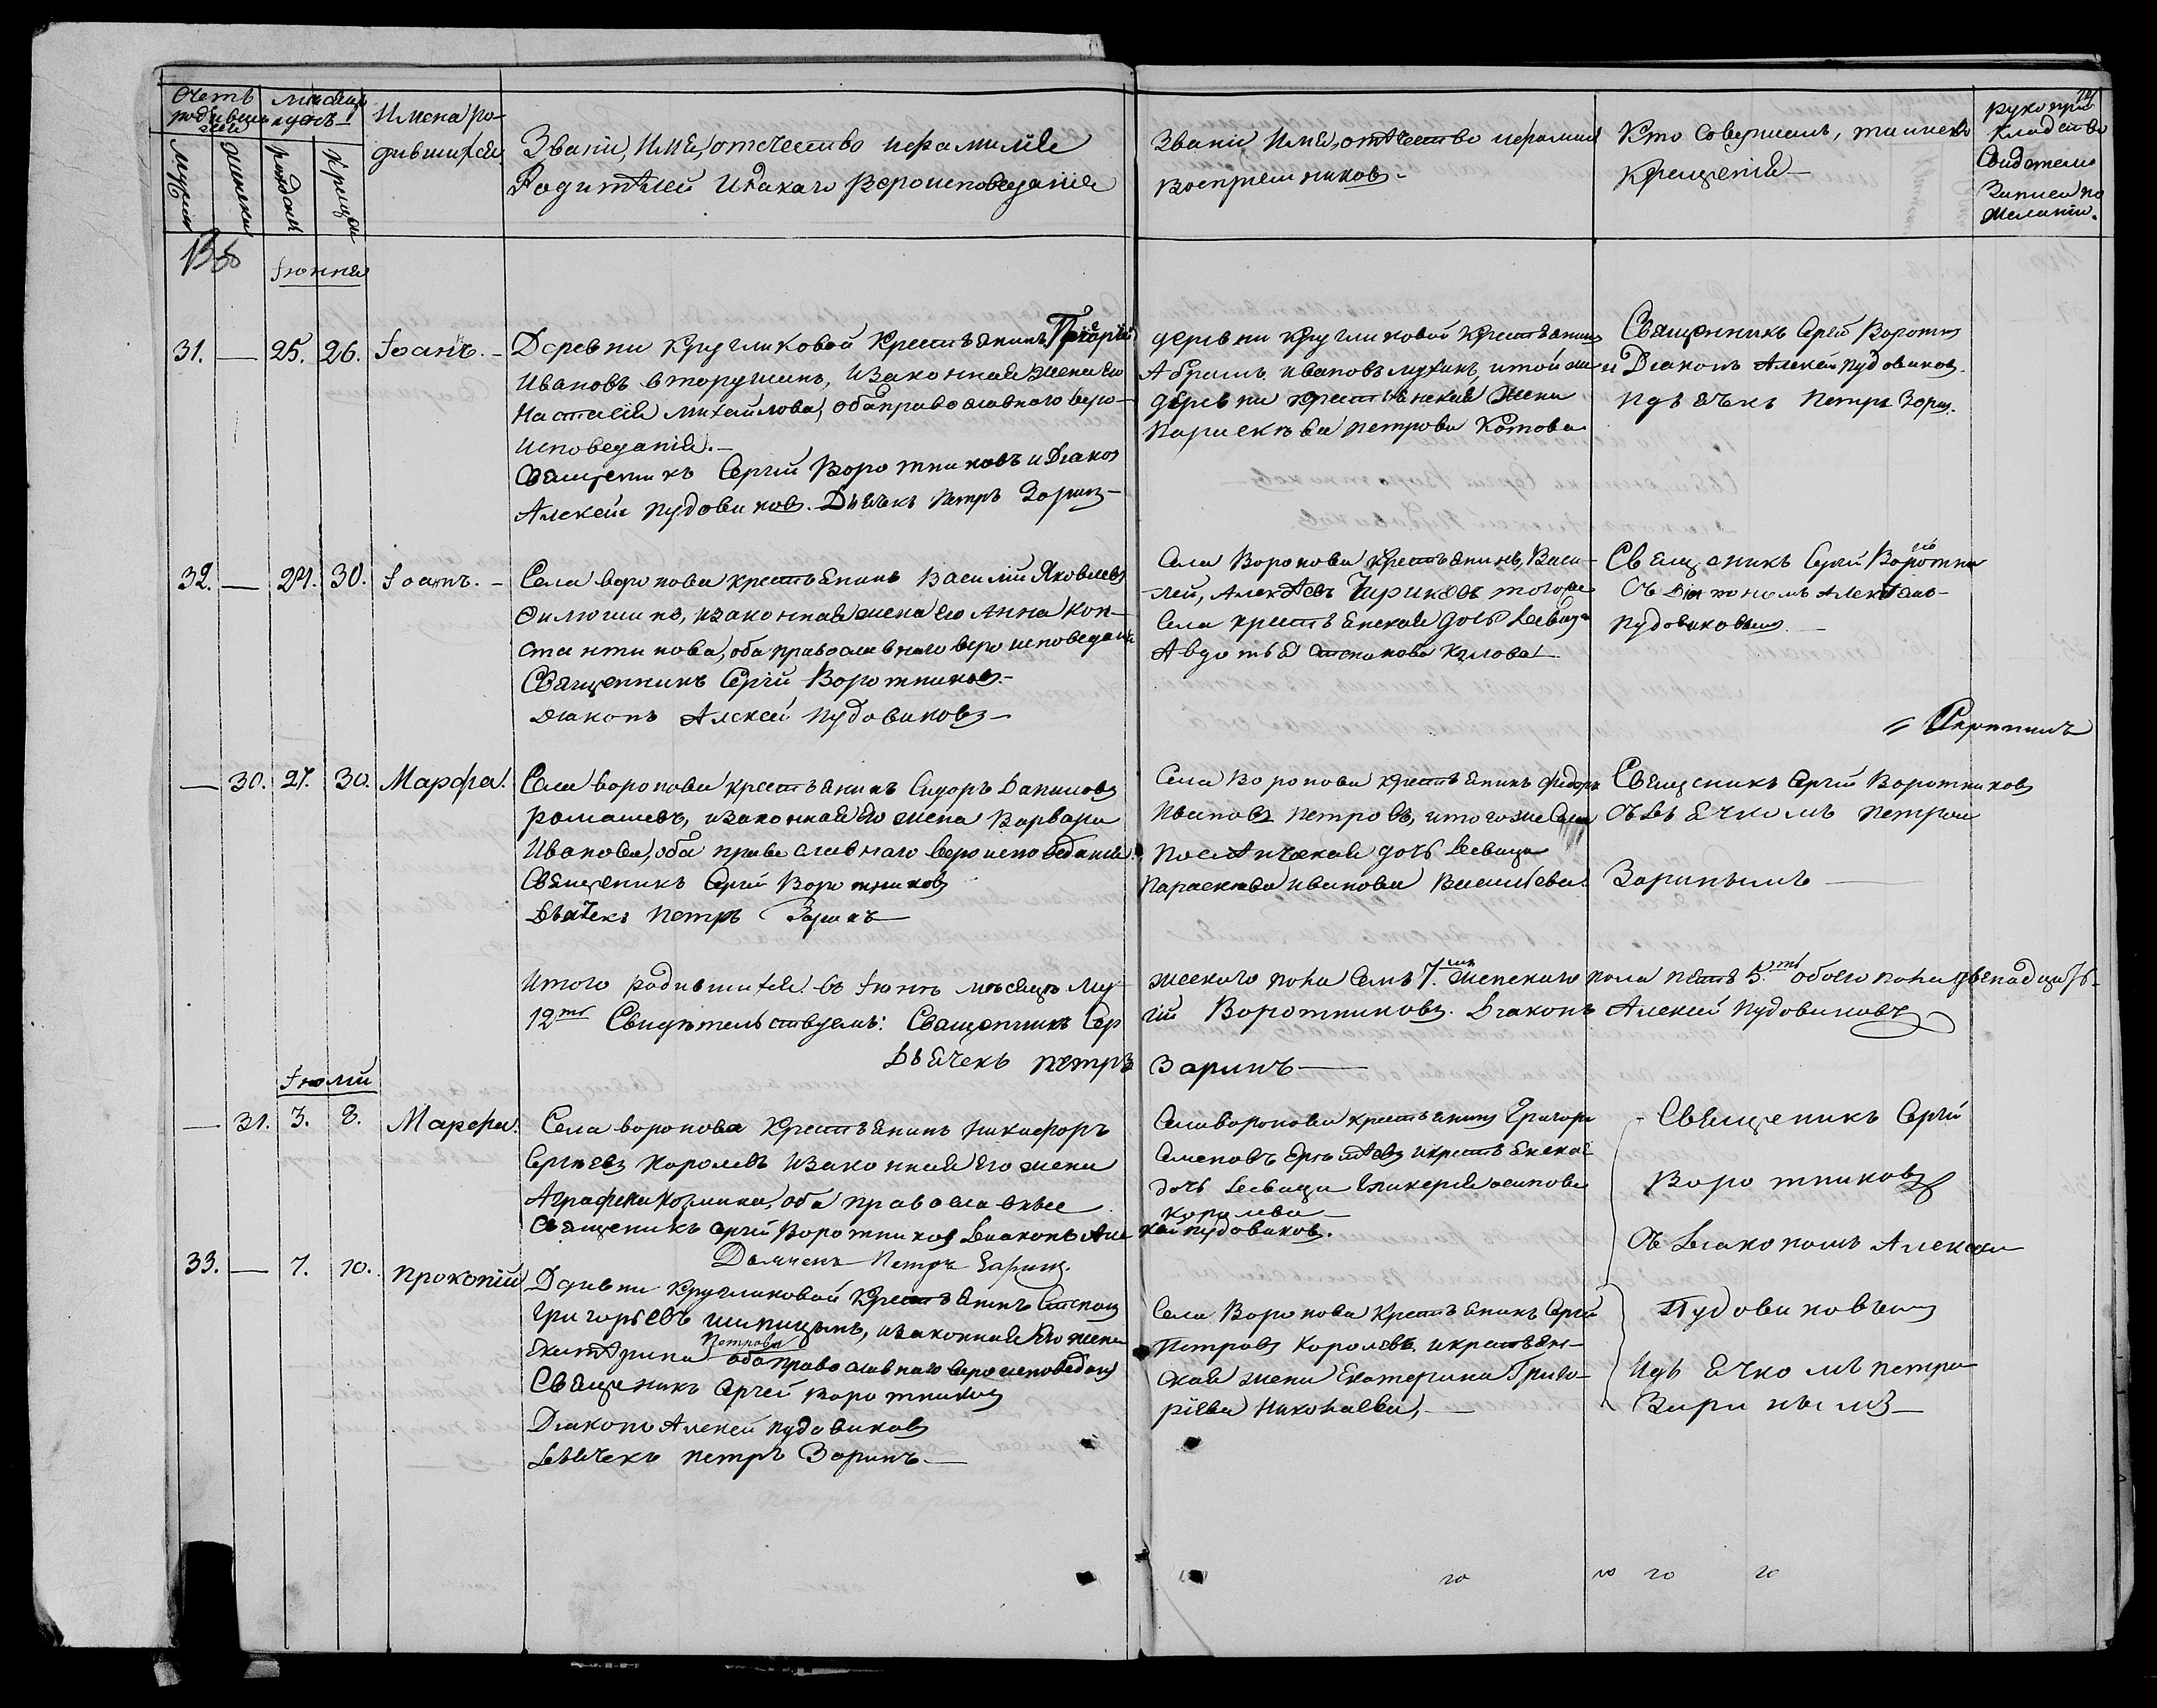 Счетъ родившихся
мужеска
женска
Месяцъ и день
рожденія
крещенія
Имена родившихся
Званіи, имя, отечество и фамилія
Родителей и какаго Вероисповеданія
Званіи Имя, отечество и фамилія
Воспріемниковъ.
Кто совершилъ, таинство
Крещенія
рукопри
кладство
Свидетелей
Записи по
желанію.
Въ
Іюння
31. — 25. 26. Іоанъ. —
Деревни Кругликовой Крестьянинъ Григорій
Ивановъ Вторушинъ, и законная жена его
Настасія Михайлова, оба православного веро-
исповеданія. —
Священникъ Сергій Воротниковъ и Діакон
Алексей Пудовиковъ. Дьячекъ Петръ Заринъ —
деревни Кругликовой Крестьянинъ
Абрамъ Ивановъ Мухинъ, и той же
деревни крестьянская жена
Параскева Петрова Котова
Священникъ Сергій Воротник
и Діаконъ Алексей Пудовиковъ
и дьячекъ Петръ Зарин.
32. — 24. 30. Іоанъ. —
Села Воронова крестьянинъ Василій Яковлевъ
Филюшинъ, и законная жена его Анна Кон-
стантинова, оба православнаго вероисповедания
Священникъ Сергій Воротниковъ. —
Діаконъ Алексей Пудовиковъ —
Села Воронова Крестьянинъ, Васи-
лей, Алексеевъ Чириковъ того же
Села крестьянская дочь девица
Авдотья Степанова Козлова
Священикъ Сергій Воротников
Съ Діакономъ Алексеемъ
Пудовиковымъ —
— 30. 27. 30. Марфа.
Села Воронова крестьянинъ Сидоръ Даниловъ
Ромашевъ, и законная его жена Варвара
Иванова, оба православнаго вероисповеданія.
Священикъ Сергій Воротниковъ
Дьячекъ Петръ Заринъ —
Села Воронова крестьянинъ Федоръ
Ивановъ Петровъ, и того же Села
дочь девица
Параскева Иванова Васильева.
Священикъ Сергій Воротниковъ
Съ Дьячкомъ Петром
Заринымъ —
Итого родившихся въ Іюнь месяцъ му-
жескаго пола Семь 7. женскаго пола пять 5. обоего пола двенадцать
12ть Свидетельствуемъ: Священникъ Сер-
гій Воротниковъ. Діаконъ Алексей Пудовиковъ
Дьячекъ Петръ Заринъ —
Іюлій
— 31. 3. 8. Марфа.
Села Воронова Крестьянинъ Никифоръ
Сергеевъ Королевъ и законная его жена
Аграфена Козмина, оба православные
Священикъ Сергій Воротников Діаконъ Але-
ксей Пудовиковъ.
Дьячекъ Петръ Заринъ.
Села Воронова крестьянинъ Григори
Семеновъ и крестьянская
дочь девица Гликерія Осипова
Королева —
Священикъ Сергій
Воротниковъ
Съ Діакономъ Алексеем
Пудовиковымъ
и дьячкомъ Петром
Заринымъ —
33. — 7. 10. Прокопій
Деревни Кругликовой Крестьянинъ Степанъ
Григорьевъ Шипицынъ, и законная его жена
Екатерина Петрова оба православнаго вероисповедан
Священикъ Сергей Воротников
Діаконъ Алексей Пудовиковъ
Дьячекъ Петръ Заринъ. —
Села Воронова Крестьянинъ Сергій
Петровъ Королевъ, и крестьян-
ская жена Екатерина Григо-
ріева Николаева, —